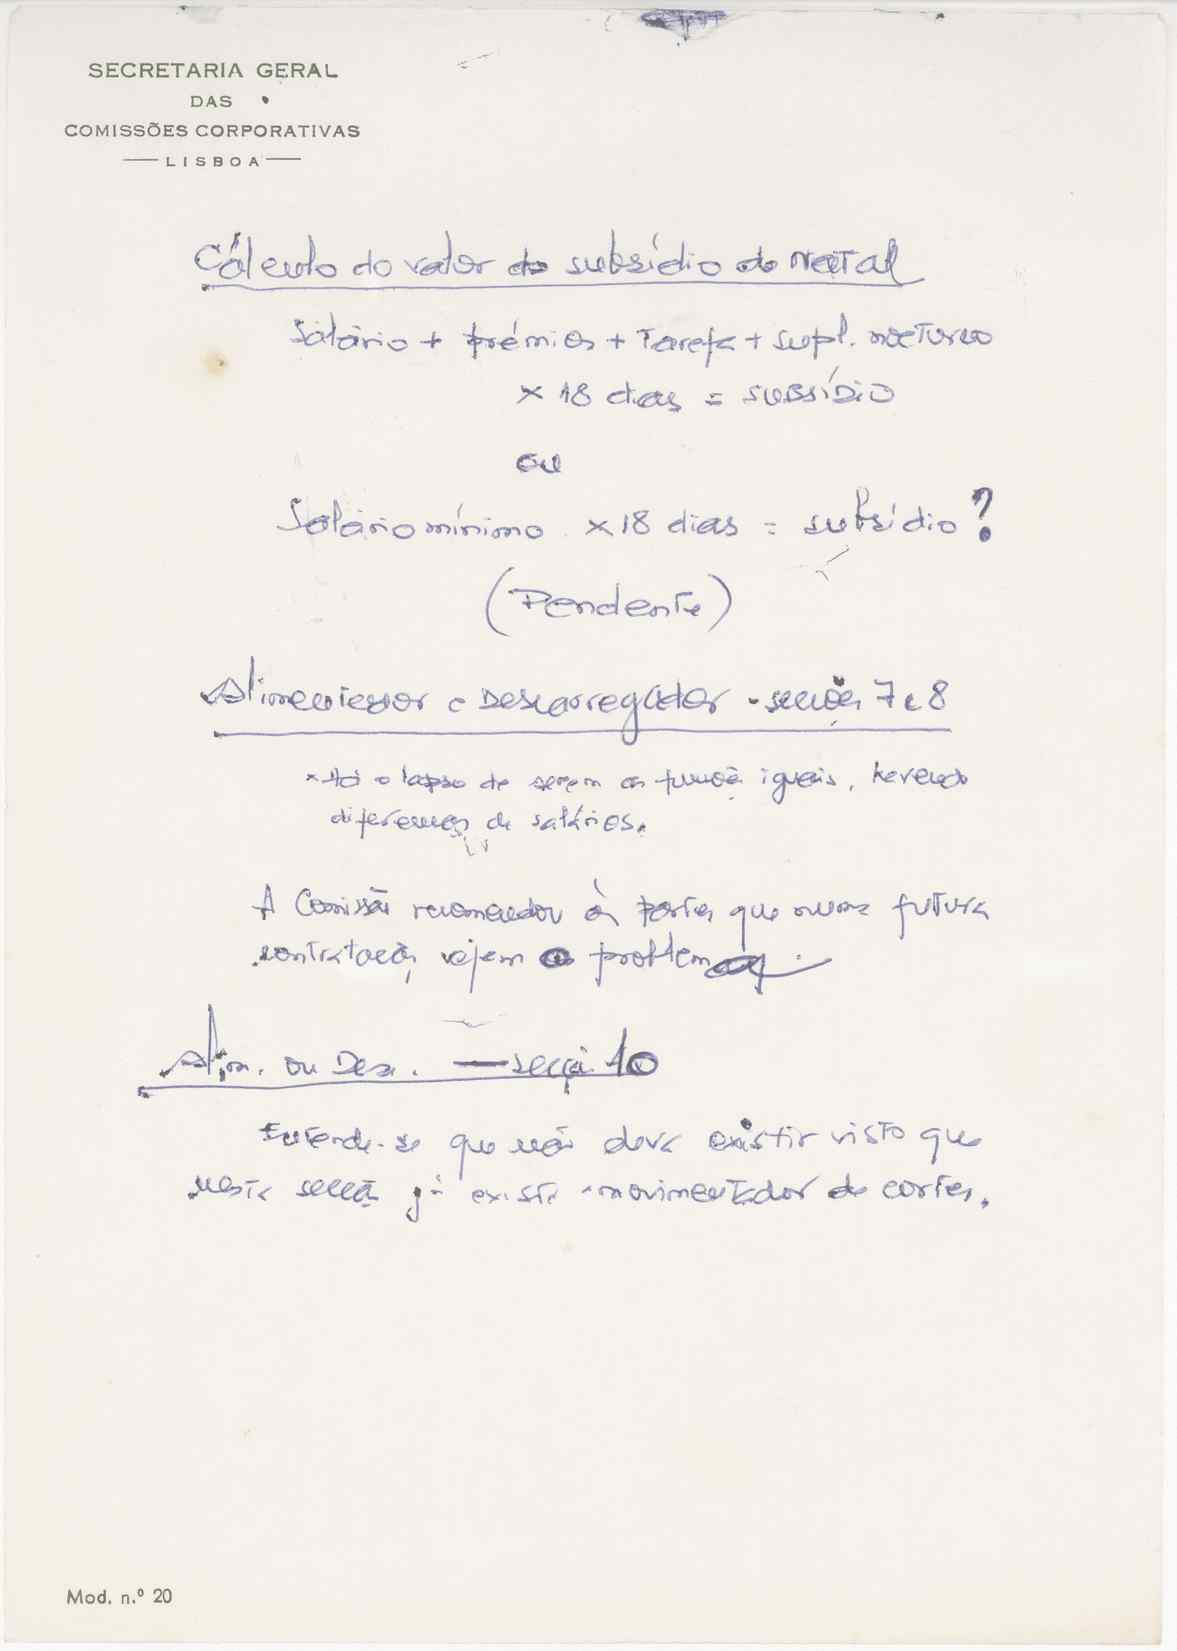 SECRETARIA GERAL
DAS
COMISSÕES CORPORATIVAS
LISBOA
Cálculo do valor do subsídio do Natal
Salário + prémios + Tarefa + supl. nocturno
× 18 dias = subsídio
ou
Salário mínimo × 18 dias = subsídio ?
(Pendente)
Alimentador e Descarregador - secções 7 e 8
× Há o lapso de serem as funções iguais, havendo
diferenças de salários.
A Comissão recomendou às partes que numa futura
contratação vejam o problema
Alim. ou Desc. — secção 10
Entende-se que não deve existir visto que
nesta secção já existe movimentador de cortes.
Mod. n.º 20